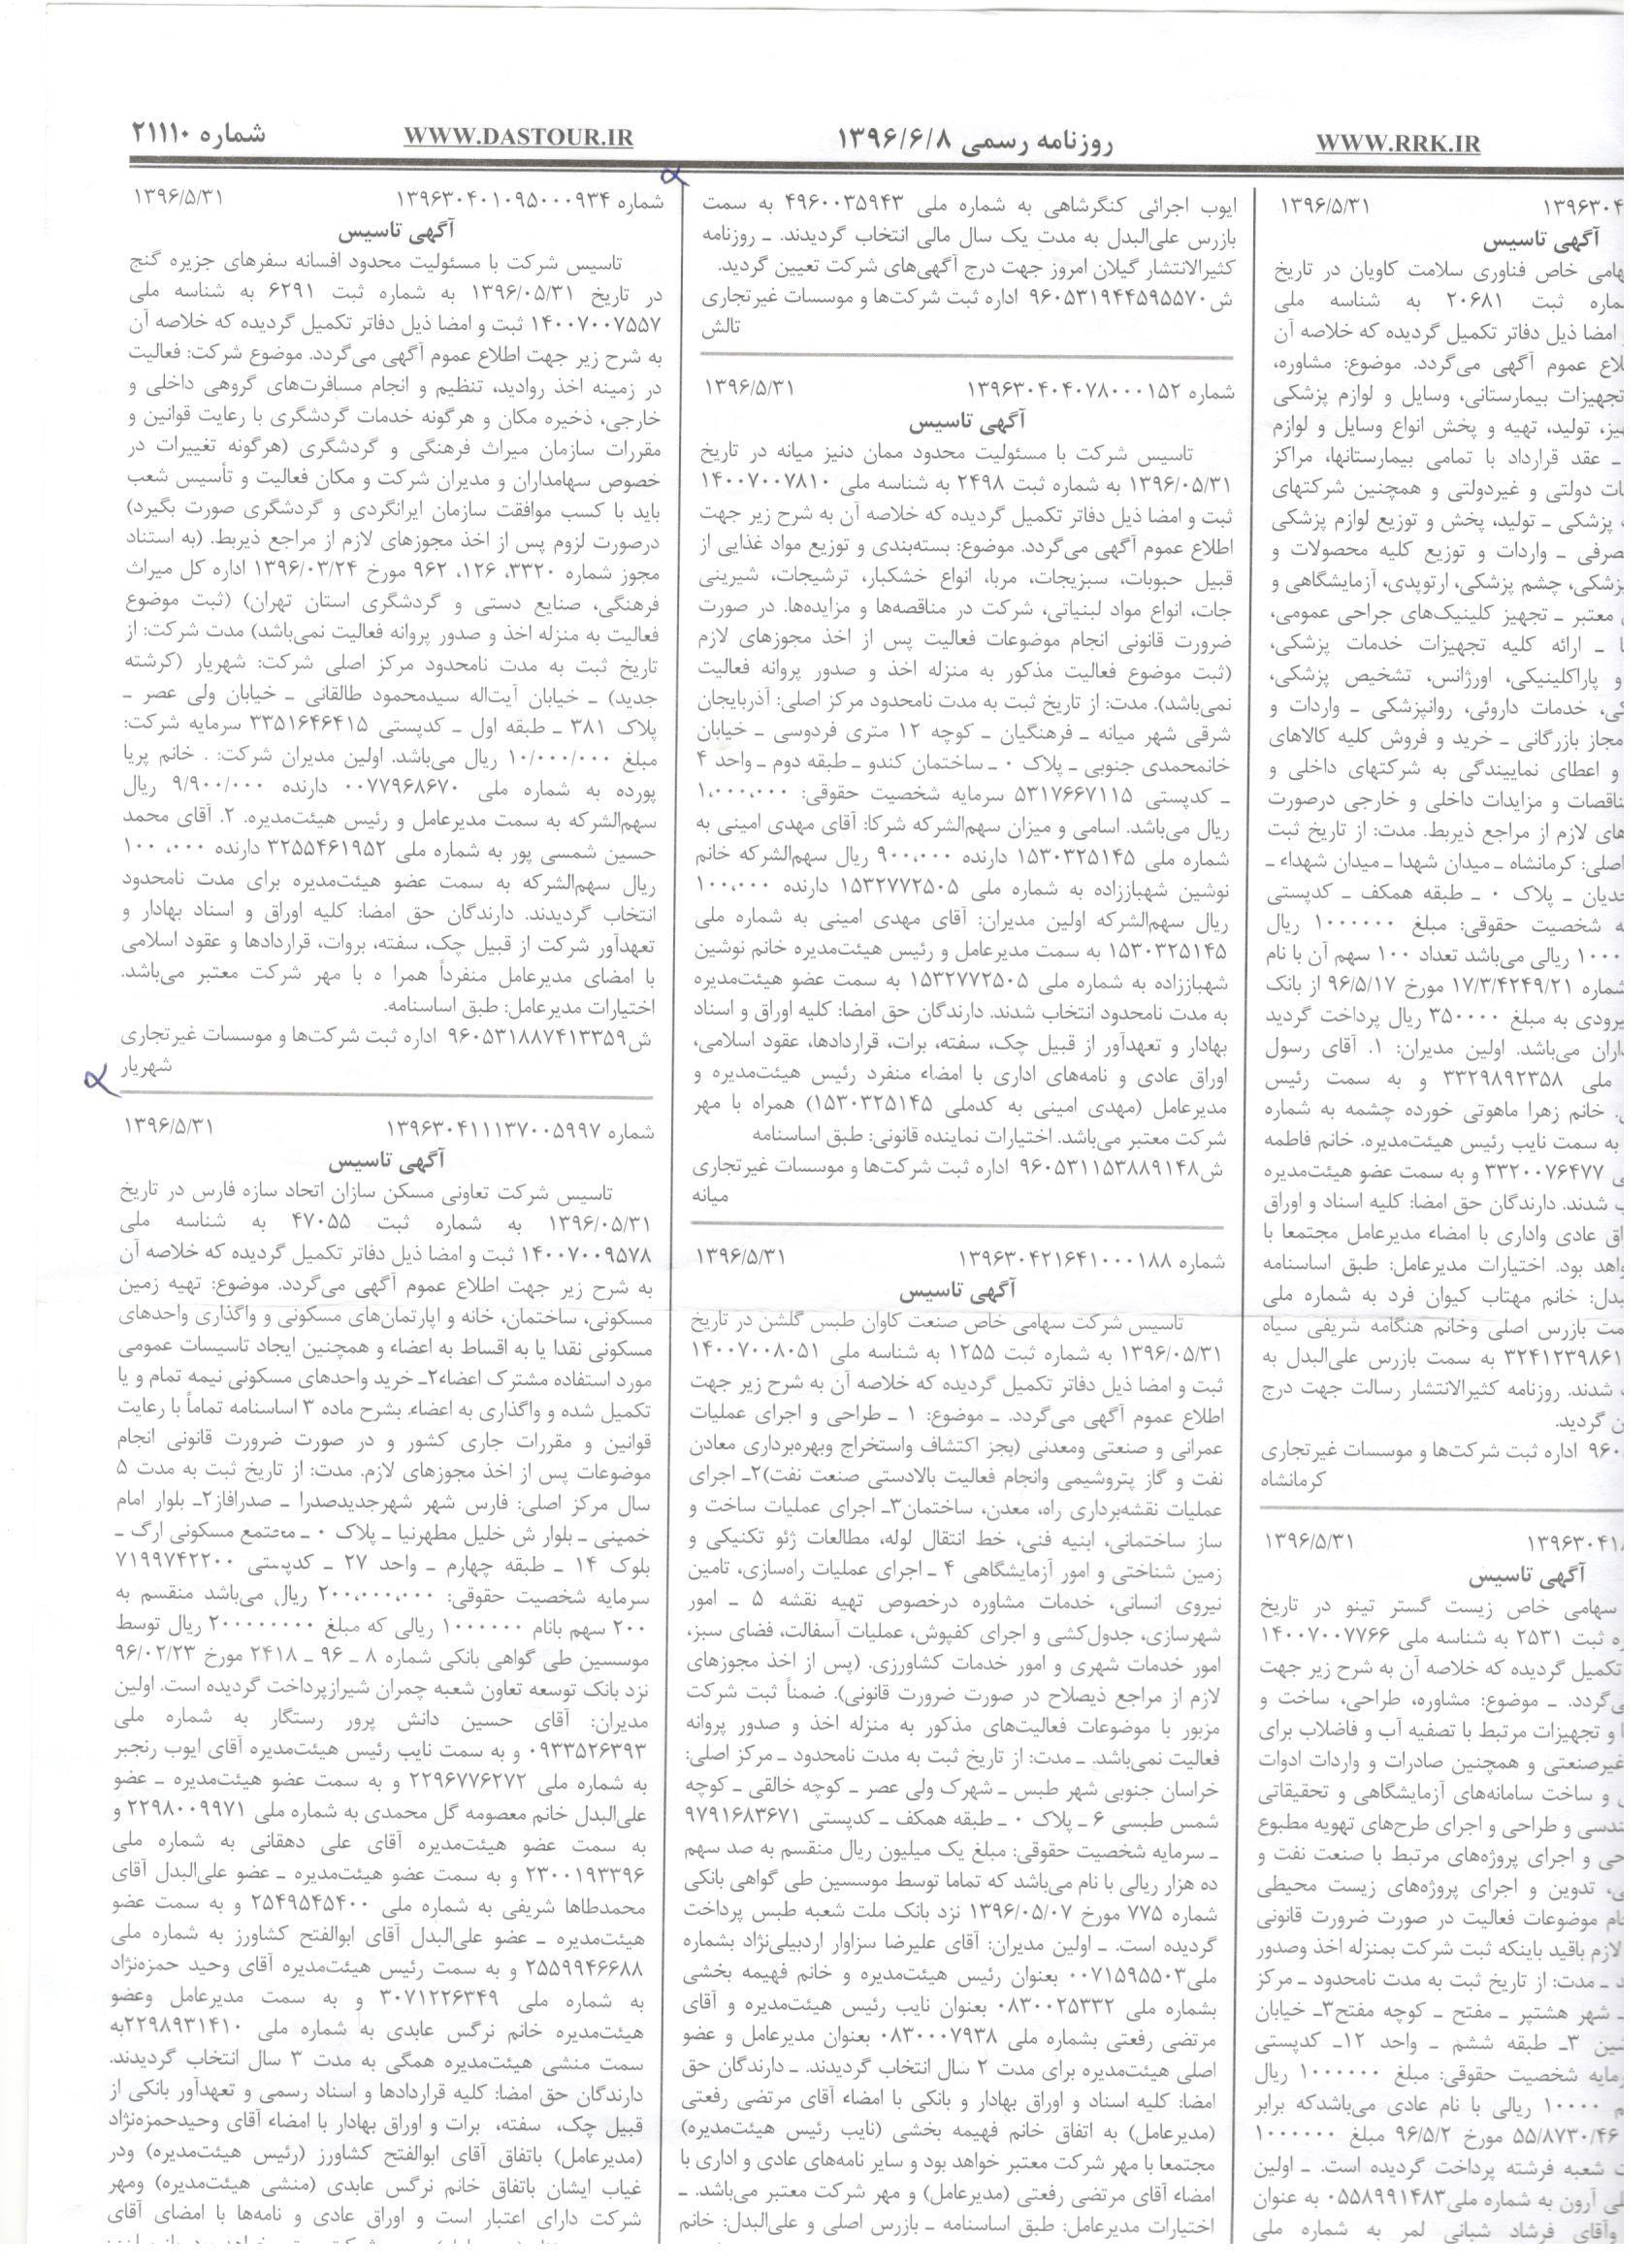 WWW.RRK.IR
روزنامه رسمی ۱۳۹۶/۶/۸
WWW.DASTOUR.IR
شماره ۲۱۱۱۰
۱۳۹۶۳۰۴ ۱۳۹۶/۵/۳۱
آگهی تاسیس
هامی خاص فناوری سلامت کاویان در تاریخ
ماره ثبت ۲۰۶۸۱ به شناسه ملی
امضا ذیل دفاتر تکمیل گردیده که خلاصه آن
لاع عموم آگهی می‌گردد. موضوع: مشاوره،
تجهیزات بیمارستانی، وسایل و لوازم پزشکی
یز، تولید، تهیه و پخش انواع وسایل و لوازم
ـ عقد قرارداد با تمامی بیمارستانها، مراکز
ات دولتی و غیردولتی و همچنین شرکتهای
پزشکی ـ تولید، پخش و توزیع لوازم پزشکی
صرفی ـ واردات و توزیع کلیه محصولات و
زشکی، چشم پزشکی، ارتوپدی، آزمایشگاهی و
معتبر ـ تجهیز کلینیک‌های جراحی عمومی،
ا ـ ارائه کلیه تجهیزات خدمات پزشکی،
و پاراکلینیکی، اورژانس، تشخیص پزشکی،
کی، خدمات داروئی، روانپزشکی ـ واردات و
مجاز بازرگانی ـ خرید و فروش کلیه کالاهای
و اعطای نماییندگی به شرکتهای داخلی و
ناقصات و مزایدات داخلی و خارجی درصورت
های لازم از مراجع ذیربط. مدت: از تاریخ ثبت
اصلی: کرمانشاه ـ میدان شهدا ـ میدان شهداء ـ
حدیان ـ پلاک ۰ ـ طبقه همکف ـ کدپستی
ه شخصیت حقوقی: مبلغ ۱۰۰۰۰۰۰ ریال
۱۰۰۰ ریالی می‌باشد تعداد ۱۰۰ سهم آن با نام
شماره ۱۷/۳/۴۲۴۹/۲۱ مورخ ۹۶/۵/۱۷ از بانک
یرودی به مبلغ ۳۵۰۰۰۰ ریال پرداخت گردید
اران می‌باشد. اولین مدیران: ۱. آقای رسول
ملی ۳۳۲۹۸۹۲۳۵۸ و به سمت رئیس
. خانم زهرا ماهوتی خورده چشمه به شماره
به سمت نایب رئیس هیئت‌مدیره. خانم فاطمه
ی ۳۳۲۰۰۷۶۴۷۷ و به سمت عضو هیئت‌مدیره
ب شدند. دارندگان حق امضا: کلیه اسناد و اوراق
اق عادی واداری با امضاء مدیرعامل مجتمعا با
واهد بود. اختیارات مدیرعامل: طبق اساسنامه
بدل: خانم مهتاب کیوان فرد به شماره ملی
مت بازرس اصلی وخانم هنگامه شریفی سیاه
۳۲۴۱۲۳۹۸۶۱ به سمت بازرس علی‌البدل به
شدند. روزنامه کثیرالانتشار رسالت جهت درج
ن گردید.
۹۶۰ اداره ثبت شرکت‌ها و موسسات غیرتجاری
کرمانشاه
۱۳۹۶۳۰۴۱۸ ۱۳۹۶/۵/۳۱
آگهی تاسیس
سهامی خاص زیست گستر تینو در تاریخ
ه ثبت ۲۵۳۱ به شناسه ملی ۱۴۰۰۷۰۰۷۷۶۶
تکمیل گردیده که خلاصه آن به شرح زیر جهت
ی‌گردد. ـ موضوع: مشاوره، طراحی، ساخت و
ا و تجهیزات مرتبط با تصفیه آب و فاضلاب برای
غیرصنعتی و همچنین صادرات و واردات ادوات
ی و ساخت سامانه‌های آزمایشگاهی و تحقیقاتی
ندسی و طراحی و اجرای طرح‌های تهویه مطبوع
حی و اجرای پروژه‌های مرتبط با صنعت نفت و
ی، تدوین و اجرای پروژه‌های زیست محیطی
ام موضوعات فعالیت در صورت ضرورت قانونی
لازم باقید باینکه ثبت شرکت بمنزله اخذ وصدور
د ـ مدت: از تاریخ ثبت به مدت نامحدود ـ مرکز
ـ شهر هشتپر ـ مفتح ـ کوچه مفتح۳ـ خیابان
شین ۳ـ طبقه ششم ـ واحد ۱۲ـ کدپستی
رمایه شخصیت حقوقی: مبلغ ۱۰۰۰۰۰۰ ریال
م ۱۰۰۰۰ ریالی با نام عادی می‌باشدکه برابر
۵۵/۸۷۳۰/۴۶ مورخ ۹۶/۵/۲ مبلغ ۱۰۰۰۰۰۰
ت شعبه فرشته پرداخت گردیده است. ـ اولین
لی آرون به شماره ملی۰۵۵۸۹۹۱۴۸۳ به عنوان
وآقای فرشاد شبانی لمر به شماره ملی
ایوب اجرائی کنگرشاهی به شماره ملی ۴۹۶۰۰۳۵۹۴۳ به سمت
بازرس علی‌البدل به مدت یک سال مالی انتخاب گردیدند. ـ روزنامه
کثیرالانتشار گیلان امروز جهت درج آگهی‌های شرکت تعیین گردید.
ش۹۶۰۵۳۱۹۴۴۵۹۵۵۷۰ اداره ثبت شرکت‌ها و موسسات غیرتجاری
تالش
شماره ۱۳۹۶۳۰۴۰۴۰۷۸۰۰۰۱۵۲ ۱۳۹۶/۵/۳۱
آگهی تاسیس
تاسیس شرکت با مسئولیت محدود ممان دنیز میانه در تاریخ
۱۳۹۶/۰۵/۳۱ به شماره ثبت ۲۴۹۸ به شناسه ملی ۱۴۰۰۷۰۰۷۸۱۰
ثبت و امضا ذیل دفاتر تکمیل گردیده که خلاصه آن به شرح زیر جهت
اطلاع عموم آگهی می‌گردد. موضوع: بسته‌بندی و توزیع مواد غذایی از
قبیل حبوبات، سبزیجات، مربا، انواع خشکبار، ترشیجات، شیرینی
جات، انواع مواد لبنیاتی، شرکت در مناقصه‌ها و مزایده‌ها. در صورت
ضرورت قانونی انجام موضوعات فعالیت پس از اخذ مجوزهای لازم
(ثبت موضوع فعالیت مذکور به منزله اخذ و صدور پروانه فعالیت
نمی‌باشد). مدت: از تاریخ ثبت به مدت نامحدود مرکز اصلی: آذربایجان
شرقی شهر میانه ـ فرهنگیان ـ کوچه ۱۲ متری فردوسی ـ خیابان
خانمحمدی جنوبی ـ پلاک ۰ ـ ساختمان کندو ـ طبقه دوم ـ واحد ۴
ـ کدپستی ۵۳۱۷۶۶۷۱۱۵ سرمایه شخصیت حقوقی: ۱،۰۰۰،۰۰۰
ریال می‌باشد. اسامی و میزان سهم‌الشرکه شرکا: آقای مهدی امینی به
شماره ملی ۱۵۳۰۳۲۵۱۴۵ دارنده ۹۰۰،۰۰۰ ریال سهم‌الشرکه خانم
نوشین شهباززاده به شماره ملی ۱۵۳۲۷۷۲۵۰۵ دارنده ۱۰۰،۰۰۰
ریال سهم‌الشرکه اولین مدیران: آقای مهدی امینی به شماره ملی
۱۵۳۰۳۲۵۱۴۵ به سمت مدیرعامل و رئیس هیئت‌مدیره خانم نوشین
شهباززاده به شماره ملی ۱۵۳۲۷۷۲۵۰۵ به سمت عضو هیئت‌مدیره
به مدت نامحدود انتخاب شدند. دارندگان حق امضا: کلیه اوراق و اسناد
بهادار و تعهدآور از قبیل چک، سفته، برات، قراردادها، عقود اسلامی،
اوراق عادی و نامه‌های اداری با امضاء منفرد رئیس هیئت‌مدیره و
مدیرعامل (مهدی امینی به کدملی ۱۵۳۰۳۲۵۱۴۵) همراه با مهر
شرکت معتبر می‌باشد. اختیارات نماینده قانونی: طبق اساسنامه
ش۹۶۰۵۳۱۱۵۳۸۸۹۱۴۸ اداره ثبت شرکت‌ها و موسسات غیرتجاری
میانه
شماره ۱۳۹۶۳۰۴۲۱۶۴۱۰۰۰۱۸۸ ۱۳۹۶/۵/۳۱
آگهی تاسیس
تاسیس شرکت سهامی خاص صنعت کاوان طبس گلشن در تاریخ
۱۳۹۶/۰۵/۳۱ به شماره ثبت ۱۲۵۵ به شناسه ملی ۱۴۰۰۷۰۰۸۰۵۱
ثبت و امضا ذیل دفاتر تکمیل گردیده که خلاصه آن به شرح زیر جهت
اطلاع عموم آگهی می‌گردد. ـ موضوع: ۱ ـ طراحی و اجرای عملیات
عمرانی و صنعتی ومعدنی (بجز اکتشاف واستخراج وبهره‌برداری معادن
نفت و گاز پتروشیمی وانجام فعالیت بالادستی صنعت نفت)۲ـ اجرای
عملیات نقشه‌برداری راه، معدن، ساختمان۳ـ اجرای عملیات ساخت و
ساز ساختمانی، ابنیه فنی، خط انتقال لوله، مطالعات ژئو تکنیکی و
زمین شناختی و امور آزمایشگاهی ۴ ـ اجرای عملیات راه‌سازی، تامین
نیروی انسانی، خدمات مشاوره درخصوص تهیه نقشه ۵ ـ امور
شهرسازی، جدول‌کشی و اجرای کفپوش، عملیات آسفالت، فضای سبز،
امور خدمات شهری و امور خدمات کشاورزی. (پس از اخذ مجوزهای
لازم از مراجع ذیصلاح در صورت ضرورت قانونی). ضمناً ثبت شرکت
مزبور با موضوعات فعالیت‌های مذکور به منزله اخذ و صدور پروانه
فعالیت نمی‌باشد. ـ مدت: از تاریخ ثبت به مدت نامحدود ـ مرکز اصلی:
خراسان جنوبی شهر طبس ـ شهرک ولی عصر ـ کوچه خالقی ـ کوچه
شمس طبسی ۶ ـ پلاک ۰ ـ طبقه همکف ـ کدپستی ۹۷۹۱۶۸۳۶۷۱
ـ سرمایه شخصیت حقوقی: مبلغ یک میلیون ریال منقسم به صد سهم
ده هزار ریالی با نام می‌باشد که تماما توسط موسسین طی گواهی بانکی
شماره ۷۷۵ مورخ ۱۳۹۶/۰۵/۰۷ نزد بانک ملت شعبه طبس پرداخت
گردیده است. ـ اولین مدیران: آقای علیرضا سزاوار اردبیلی‌نژاد بشماره
ملی۰۰۷۱۵۹۵۵۰۳ بعنوان رئیس هیئت‌مدیره و خانم فهیمه بخشی
بشماره ملی ۰۸۳۰۰۲۵۳۳۲ بعنوان نایب رئیس هیئت‌مدیره و آقای
مرتضی رفعتی بشماره ملی ۰۸۳۰۰۰۷۹۳۸ بعنوان مدیرعامل و عضو
اصلی هیئت‌مدیره برای مدت ۲ سال انتخاب گردیدند. ـ دارندگان حق
امضا: کلیه اسناد و اوراق بهادار و بانکی با امضاء آقای مرتضی رفعتی
(مدیرعامل) به اتفاق خانم فهیمه بخشی (نایب رئیس هیئت‌مدیره)
مجتمعا با مهر شرکت معتبر خواهد بود و سایر نامه‌های عادی و اداری با
امضاء آقای مرتضی رفعتی (مدیرعامل) و مهر شرکت معتبر می‌باشد. ـ
اختیارات مدیرعامل: طبق اساسنامه ـ بازرس اصلی و علی‌البدل: خانم
شماره ۱۳۹۶۳۰۴۰۱۰۹۵۰۰۰۹۳۴ ۱۳۹۶/۵/۳۱
آگهی تاسیس
تاسیس شرکت با مسئولیت محدود افسانه سفرهای جزیره گنج
در تاریخ ۱۳۹۶/۰۵/۳۱ به شماره ثبت ۶۲۹۱ به شناسه ملی
۱۴۰۰۷۰۰۷۵۵۷ ثبت و امضا ذیل دفاتر تکمیل گردیده که خلاصه آن
به شرح زیر جهت اطلاع عموم آگهی می‌گردد. موضوع شرکت: فعالیت
در زمینه اخذ روادید، تنظیم و انجام مسافرت‌های گروهی داخلی و
خارجی، ذخیره مکان و هرگونه خدمات گردشگری با رعایت قوانین و
مقررات سازمان میراث فرهنگی و گردشگری (هرگونه تغییرات در
خصوص سهامداران و مدیران شرکت و مکان فعالیت و تأسیس شعب
باید با کسب موافقت سازمان ایرانگردی و گردشگری صورت بگیرد)
درصورت لزوم پس از اخذ مجوزهای لازم از مراجع ذیربط. (به استناد
مجوز شماره ۳۳۲۰، ۱۲۶، ۹۶۲ مورخ ۱۳۹۶/۰۳/۲۴ اداره کل میراث
فرهنگی، صنایع دستی و گردشگری استان تهران) (ثبت موضوع
فعالیت به منزله اخذ و صدور پروانه فعالیت نمی‌باشد) مدت شرکت: از
تاریخ ثبت به مدت نامحدود مرکز اصلی شرکت: شهریار (کرشته
جدید) ـ خیابان آیت‌اله سیدمحمود طالقانی ـ خیابان ولی عصر ـ
پلاک ۳۸۱ ـ طبقه اول ـ کدپستی ۳۳۵۱۶۴۶۴۱۵ سرمایه شرکت:
مبلغ ۱۰/۰۰۰/۰۰۰ ریال می‌باشد. اولین مدیران شرکت: . خانم پریا
پورده به شماره ملی ۰۰۷۷۹۶۸۶۷۰ دارنده ۹/۹۰۰/۰۰۰ ریال
سهم‌الشرکه به سمت مدیرعامل و رئیس هیئت‌مدیره. ۲. آقای محمد
حسین شمسی پور به شماره ملی ۳۲۵۵۴۶۱۹۵۲ دارنده ۱۰۰ ،۰۰۰
ریال سهم‌الشرکه به سمت عضو هیئت‌مدیره برای مدت نامحدود
انتخاب گردیدند. دارندگان حق امضا: کلیه اوراق و اسناد بهادار و
تعهدآور شرکت از قبیل چک، سفته، بروات، قراردادها و عقود اسلامی
با امضای مدیرعامل منفرداً همرا ه با مهر شرکت معتبر می‌باشد.
اختیارات مدیرعامل: طبق اساسنامه.
ش۹۶۰۵۳۱۸۸۷۴۱۳۳۵۹ اداره ثبت شرکت‌ها و موسسات غیرتجاری
شهریار
شماره ۱۳۹۶۳۰۴۱۱۱۳۷۰۰۵۹۹۷ ۱۳۹۶/۵/۳۱
آگهی تاسیس
تاسیس شرکت تعاونی مسکن سازان اتحاد سازه فارس در تاریخ
۱۳۹۶/۰۵/۳۱ به شماره ثبت ۴۷۰۵۵ به شناسه ملی
۱۴۰۰۷۰۰۹۵۷۸ ثبت و امضا ذیل دفاتر تکمیل گردیده که خلاصه آن
به شرح زیر جهت اطلاع عموم آگهی می‌گردد. موضوع: تهیه زمین
مسکونی، ساختمان، خانه و اپارتمان‌های مسکونی و واگذاری واحدهای
مسکونی نقدا یا به اقساط به اعضاء و همچنین ایجاد تاسیسات عمومی
مورد استفاده مشترک اعضاء۲ـ خرید واحدهای مسکونی نیمه تمام و یا
تکمیل شده و واگذاری به اعضاء. بشرح ماده ۳ اساسنامه تماماً با رعایت
قوانین و مقررات جاری کشور و در صورت ضرورت قانونی انجام
موضوعات پس از اخذ مجوزهای لازم. مدت: از تاریخ ثبت به مدت ۵
سال مرکز اصلی: فارس شهر شهرجدیدصدرا ـ صدرافاز۲ـ بلوار امام
خمینی ـ بلوار ش خلیل مطهرنیا ـ پلاک ۰ ـ مجتمع مسکونی ارگ ـ
بلوک ۱۴ ـ طبقه چهارم ـ واحد ۲۷ ـ کدپستی ۷۱۹۹۷۴۲۲۰۰
سرمایه شخصیت حقوقی: ۲۰۰،۰۰۰،۰۰۰ ریال می‌باشد منقسم به
۲۰۰ سهم بانام ۱۰۰۰۰۰۰ ریالی که مبلغ ۲۰۰۰۰۰۰۰۰ ریال توسط
موسسین طی گواهی بانکی شماره ۸ ـ ۹۶ ـ ۲۴۱۸ مورخ ۹۶/۰۲/۲۳
نزد بانک توسعه تعاون شعبه چمران شیرازپرداخت گردیده است. اولین
مدیران: آقای حسین دانش پرور رستگار به شماره ملی
۰۹۳۳۵۲۶۳۹۳ و به سمت نایب رئیس هیئت‌مدیره آقای ایوب رنجبر
به شماره ملی ۲۲۹۶۷۷۶۲۷۲ و به سمت عضو هیئت‌مدیره ـ عضو
علی‌البدل خانم معصومه گل محمدی به شماره ملی ۲۲۹۸۰۰۹۹۷۱ و
به سمت عضو هیئت‌مدیره آقای علی دهقانی به شماره ملی
۲۳۰۰۱۹۳۳۹۶ و به سمت عضو هیئت‌مدیره ـ عضو علی‌البدل آقای
محمدطاها شریفی به شماره ملی ۲۵۴۹۵۴۵۴۰۰ و به سمت عضو
هیئت‌مدیره ـ عضو علی‌البدل آقای ابوالفتح کشاورز به شماره ملی
۲۵۵۹۹۴۶۶۸۸ و به سمت رئیس هیئت‌مدیره آقای وحید حمزه‌نژاد
به شماره ملی ۳۰۷۱۲۲۶۳۴۹ و به سمت مدیرعامل وعضو
هیئت‌مدیره خانم نرگس عابدی به شماره ملی ۲۲۹۸۹۳۱۴۱۰به
سمت منشی هیئت‌مدیره همگی به مدت ۳ سال انتخاب گردیدند.
دارندگان حق امضا: کلیه قراردادها و اسناد رسمی و تعهدآور بانکی از
قبیل چک، سفته، برات و اوراق بهادار با امضاء آقای وحیدحمزه‌نژاد
(مدیرعامل) باتفاق آقای ابوالفتح کشاورز (رئیس هیئت‌مدیره) ودر
غیاب ایشان باتفاق خانم نرگس عابدی (منشی هیئت‌مدیره) ومهر
شرکت دارای اعتبار است و اوراق عادی و نامه‌ها با امضای آقای